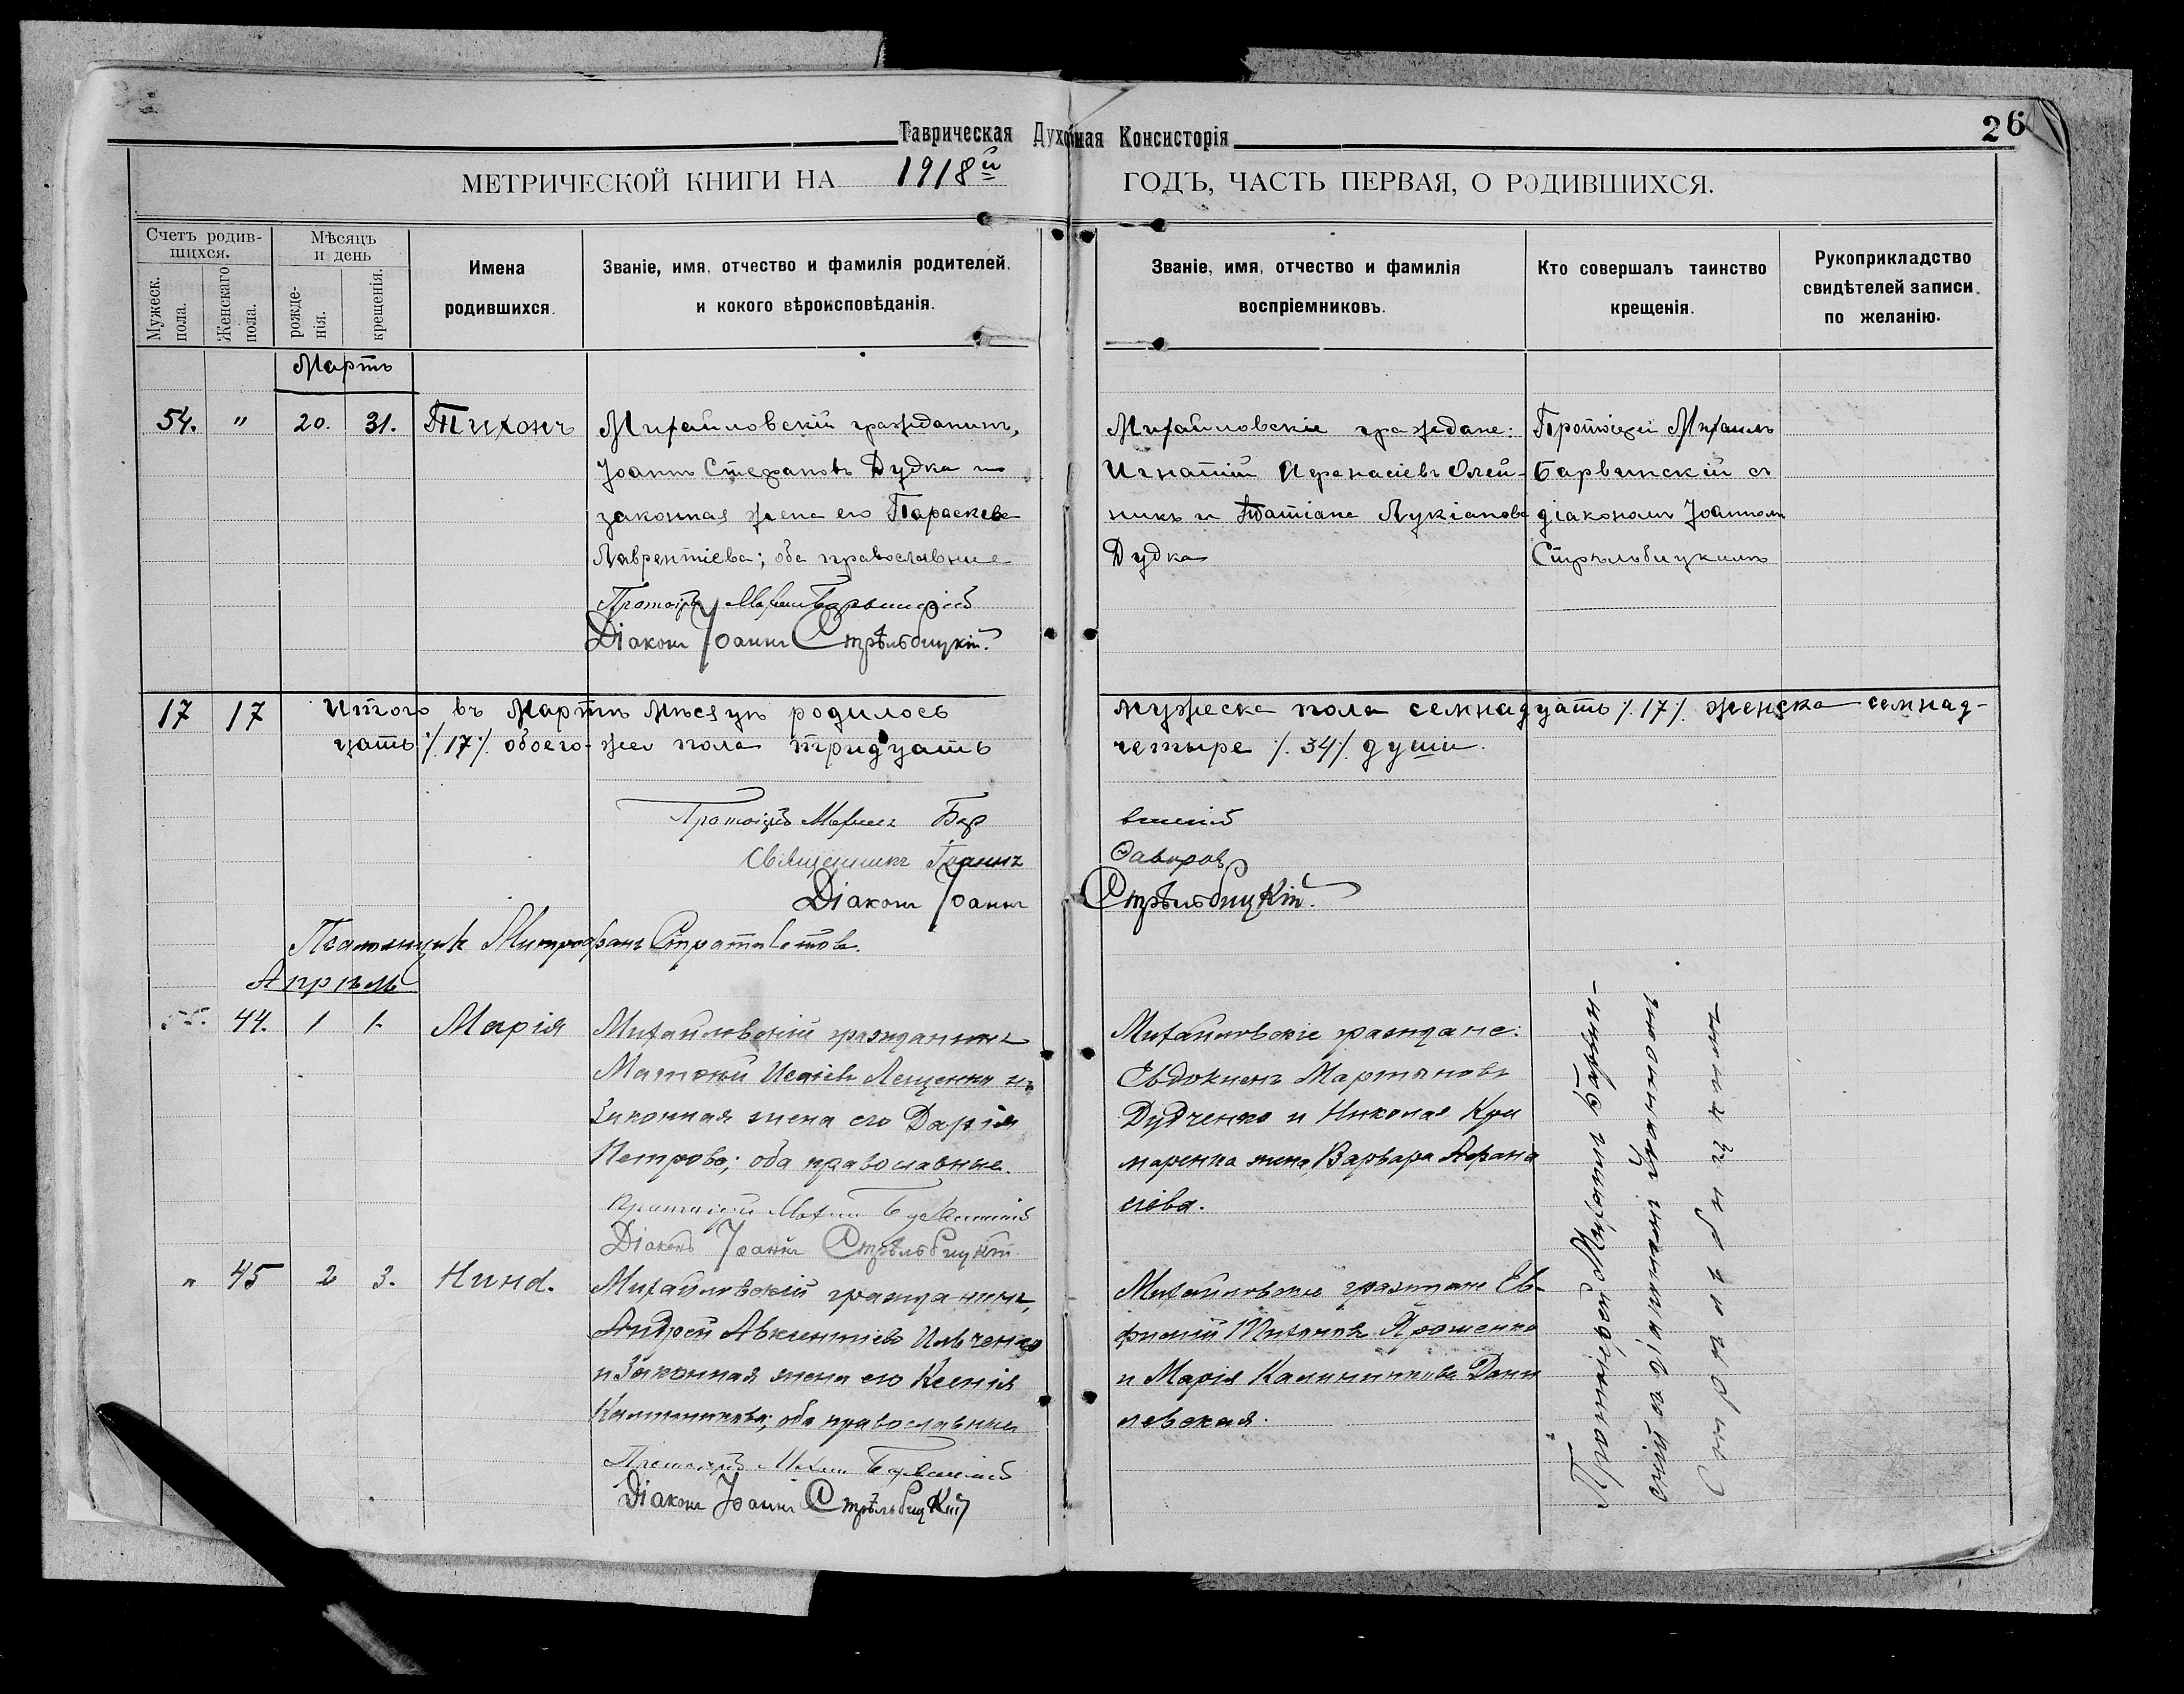 Таврическая Духовная Консисторія
26
МЕТРИЧЕСКОЙ КНИГИ НА 1918й ГОДЪ, ЧАСТЬ ПЕРВАЯ, О РОДИВШИХСЯ.
Счетъ родив-
шихся.
Мужеск.
пола.
Женскаго
пола.
Мѣсяцъ
и день
рожде-
нія.
крещенія.
Имена
родившихся.
Званіе, имя, отчество и фамилія родителей,
и кокого вѣроисповѣданія.
Званіе, имя, отчество и фамилія
воспріемниковъ.
Кто совершалъ таинство
крещенія.
Рукоприкладство
свидѣтелей записи
по желанію.
Мартъ
54. " 20. 31. Тихонъ
Михайловскій гражданинъ,
Іоаннъ Стефановъ Дудка и
законная жена его Параскева
Лаврентіева; оба православные
Протоіерей Михаилъ Барвинскій
Діаконъ Іоаннъ Стрѣльбицкій.
Михайловскіе граждане:
Игнатій Афанасіевъ Олей-
никъ и Татіана Лукіанова
Дудка
Протоіерей Михаилъ
Барвинскій съ
діакономъ Іоанномъ
Стрѣльбицкимъ
17 17 Итого въ Мартѣ мѣсяцѣ родилось мужеска пола семнадцать /.17/. женска семнад-
цать /.17/. обоего-же пола тридцать четыре /.34/. души.
Протоіерей Михаилъ Барвинскій
Священникъ Іоаннъ Фаворовъ
Діаконъ Іоаннъ Стрѣльбицкій.
Псаломщик Митрофанъ
Апрѣль
44. 1 1. Марія
Михайловскій гражданинъ
Исаіевъ Лещенко и
Законная жена его Дарія
Петрова; оба православные.
Протоіерей Михаилъ Барвинскій
Діаконъ Іоаннъ Стрѣльбицкій
Михайловскіе граждане:
Евдокимъ Мартыновъ
Дудченко и Николая Кри
маренка жена Варвара Афана
сіева.
" 45 2 3. Нина.
Михайловскій гражданинъ,
Андрей Авксентіевъ Ильченко
и Законная жена его Ксенія
Калинникова; оба православные
Протоіерей Михаилъ Барвинскій
Діаконъ Іоаннъ Стрѣльбицкій
Михайловскіе граждане Ев-
фимій Ярошенко
и Марія Калинникова Дани
левская.
Протоіерей Михаилъ Барвин-
скій съ діакономъ Іоанномъ
Стрѣльбицкимъ